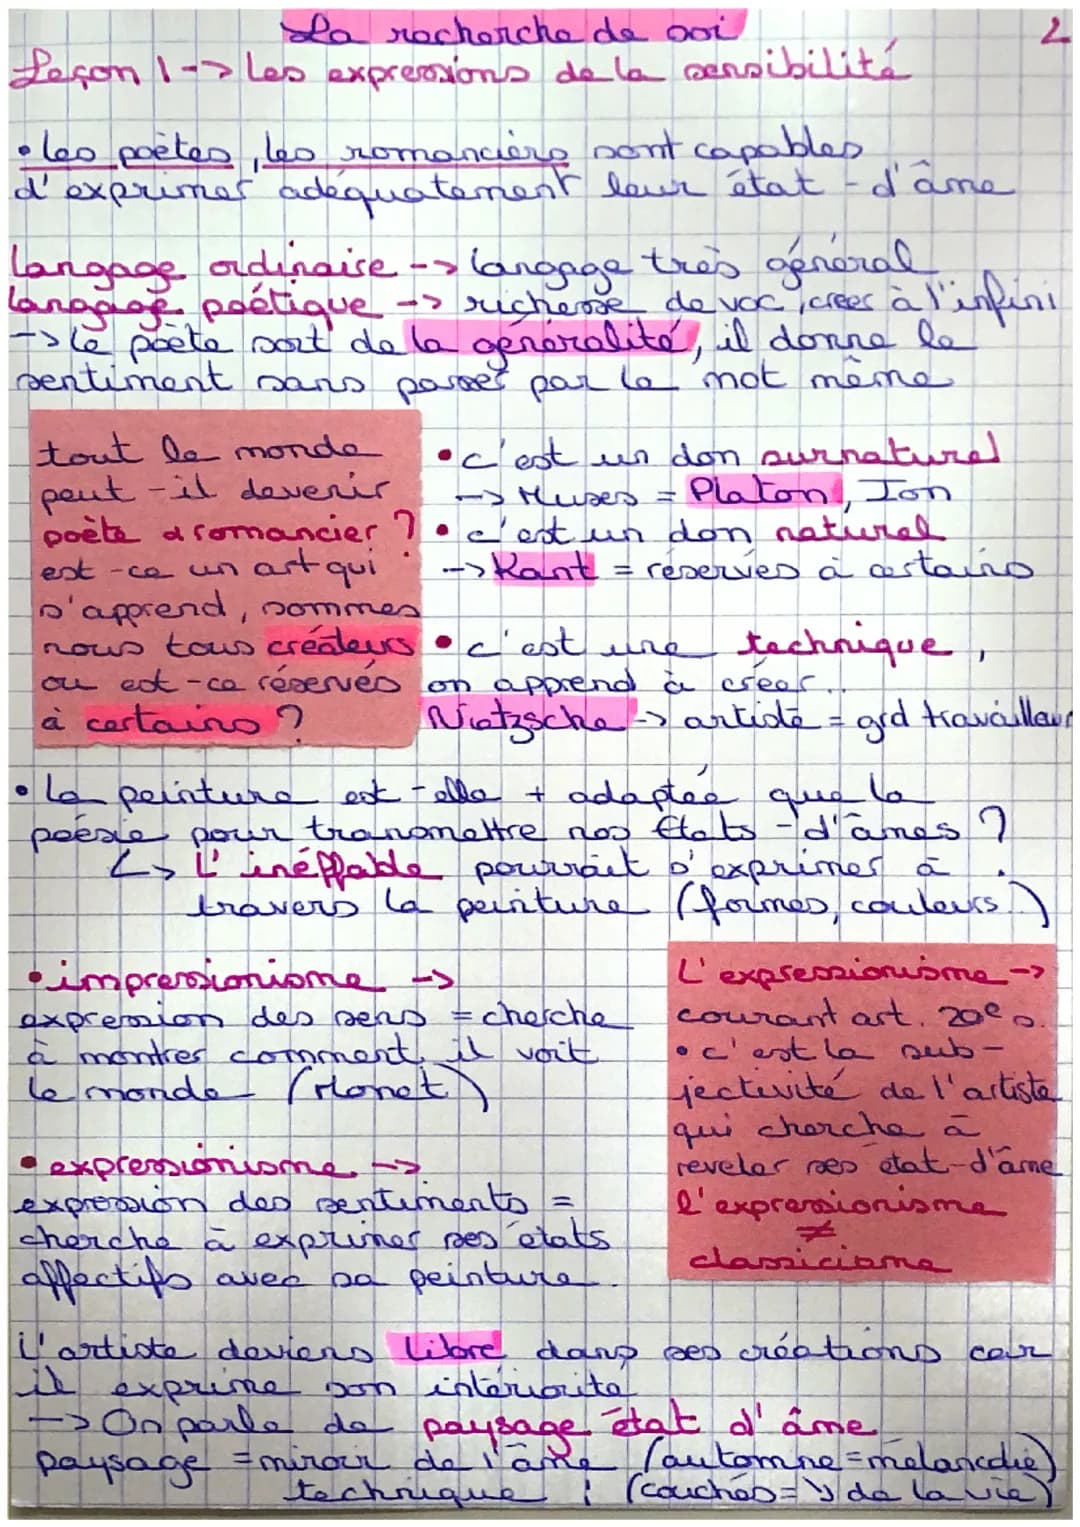 La recherche de soi
2
Leçon 1 --> Les expressions de la sensibilité
• les poètes, les romanciers sont capables
d'exprimer adéquatement leur état-d'âme
langage ordinaire --> langage très général
langage poétique --> richesse de voc, créer à l'infini
--> le poète sort de la généralité, il donne le
sentiment sans passer par le mot même
tout le monde
peut-il devenir
poète & romancier ?
est-ce un art qui
s'apprend, sommes
nous tous créateurs
ou est-ce réservés
à certains ?
• c'est un don surnaturel
--> Muses = Platon, Ion
• c'est un don naturel
--> Kant = réservés à certains
• c'est une technique,
on apprend à créer..
Nietzsche --> artiste = grd travailleur
• La peinture est-elle + adaptée que la
poésie pour transmettre nos états-d'âmes ?
↳ L'inéffable pourrait s'exprimer à
travers la peinture (formes, couleurs..)
• impressionisme -->
expression des sens = cherche
à montrer comment il voit
le monde (Monet)
• expressionisme -->
expression des sentiments =
cherche à exprimer ses états
affectifs avec sa peinture.
L'expressionisme -->
courant art. 20e s.
• c'est la sub-
jectivité de l'artiste
qui cherche à
reveler ses état-d'âme
l'expressionisme
≠
classicisme
L'artiste deviens libre dans ses créations car
il exprime son intériorité
--> On parle de paysage état d'âme
paysage = miroir de l'âme (automne = mélancolie)
technique : (couchés = ↘ de la vie)